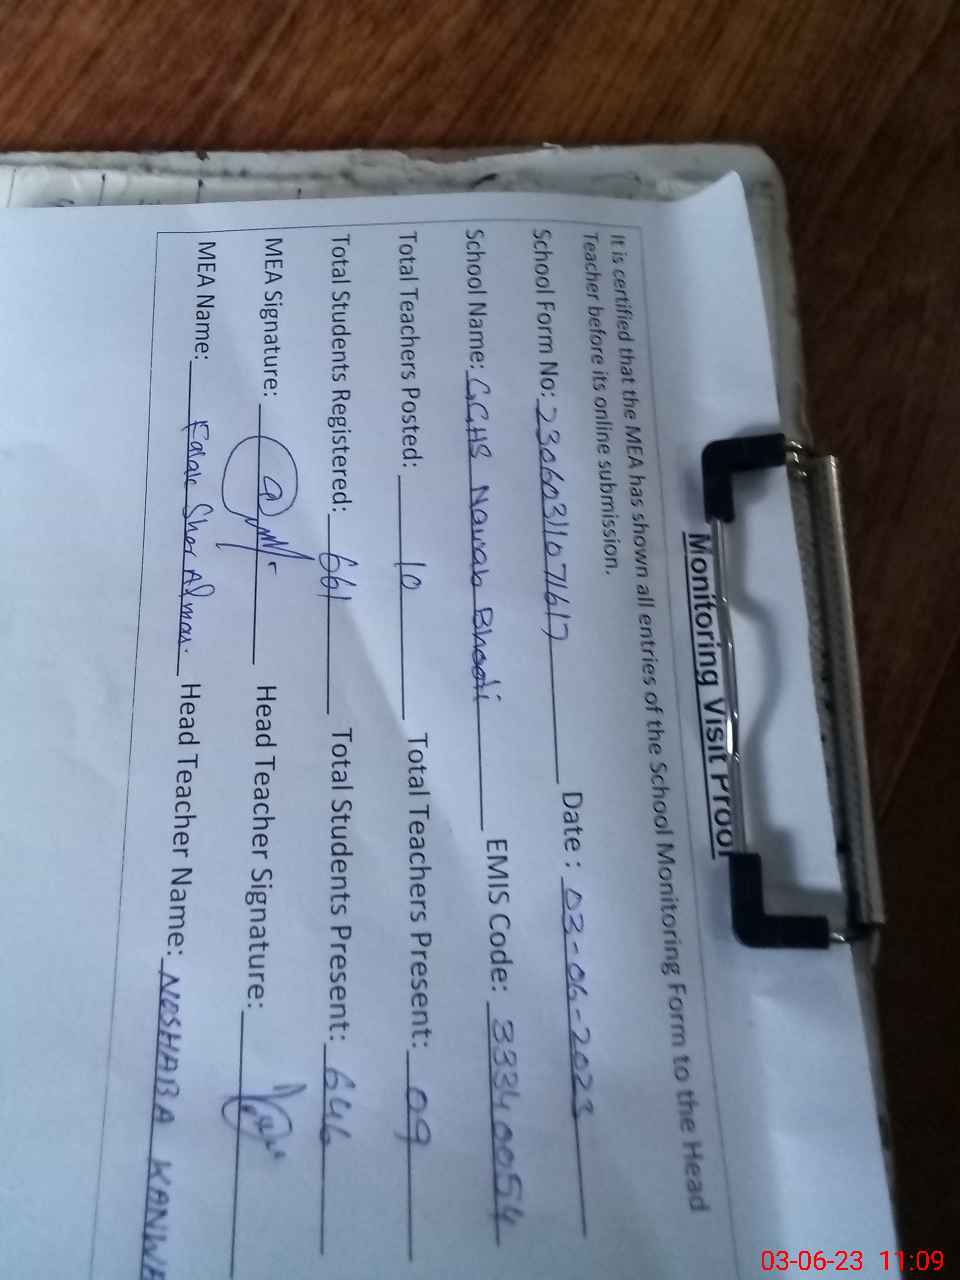 Monitoring Visit Proof
It is certified that the MEA has shown all entries of the School Monitoring Form to the Head
Teacher before its online submission.
School Form No: 23060311071617 Date : 03-06-2023
School Name: G.G.HS Nawab Bhooti EMIS Code: 33340054
Total Teachers Posted: 10 Total Teachers Present: 09
Total Students Registered: 661 Total Students Present: 646
MEA Signature: Head Teacher Signature:
MEA Name: Sher Head Teacher Name: NOSHABA KANWA
03-06-23 11:09